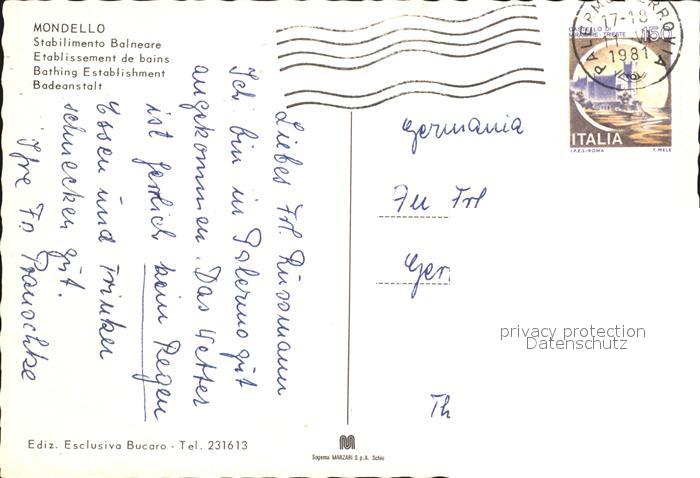 MONDELLO
Stabilimento Balneare
Etablissement de bains
Bathing Establishment
Badeanstalt
Liebes Frl. Russmann
Ich bin in Palermo gut
angekommen. Das Wetter
ist herrlich kein Regen
Essen und Trinken
schmecken gut.
Ihre Fr.
17-18
1981
150
ITALIA
I.P.Z.S.-ROMA T. MELE
Germania
Frl
Ger
Th
privacy protection
Datenschutz
Ediz. Esclusiva Bucaro - Tel. 231613
Sogema MARZARI S.p.A. Schio